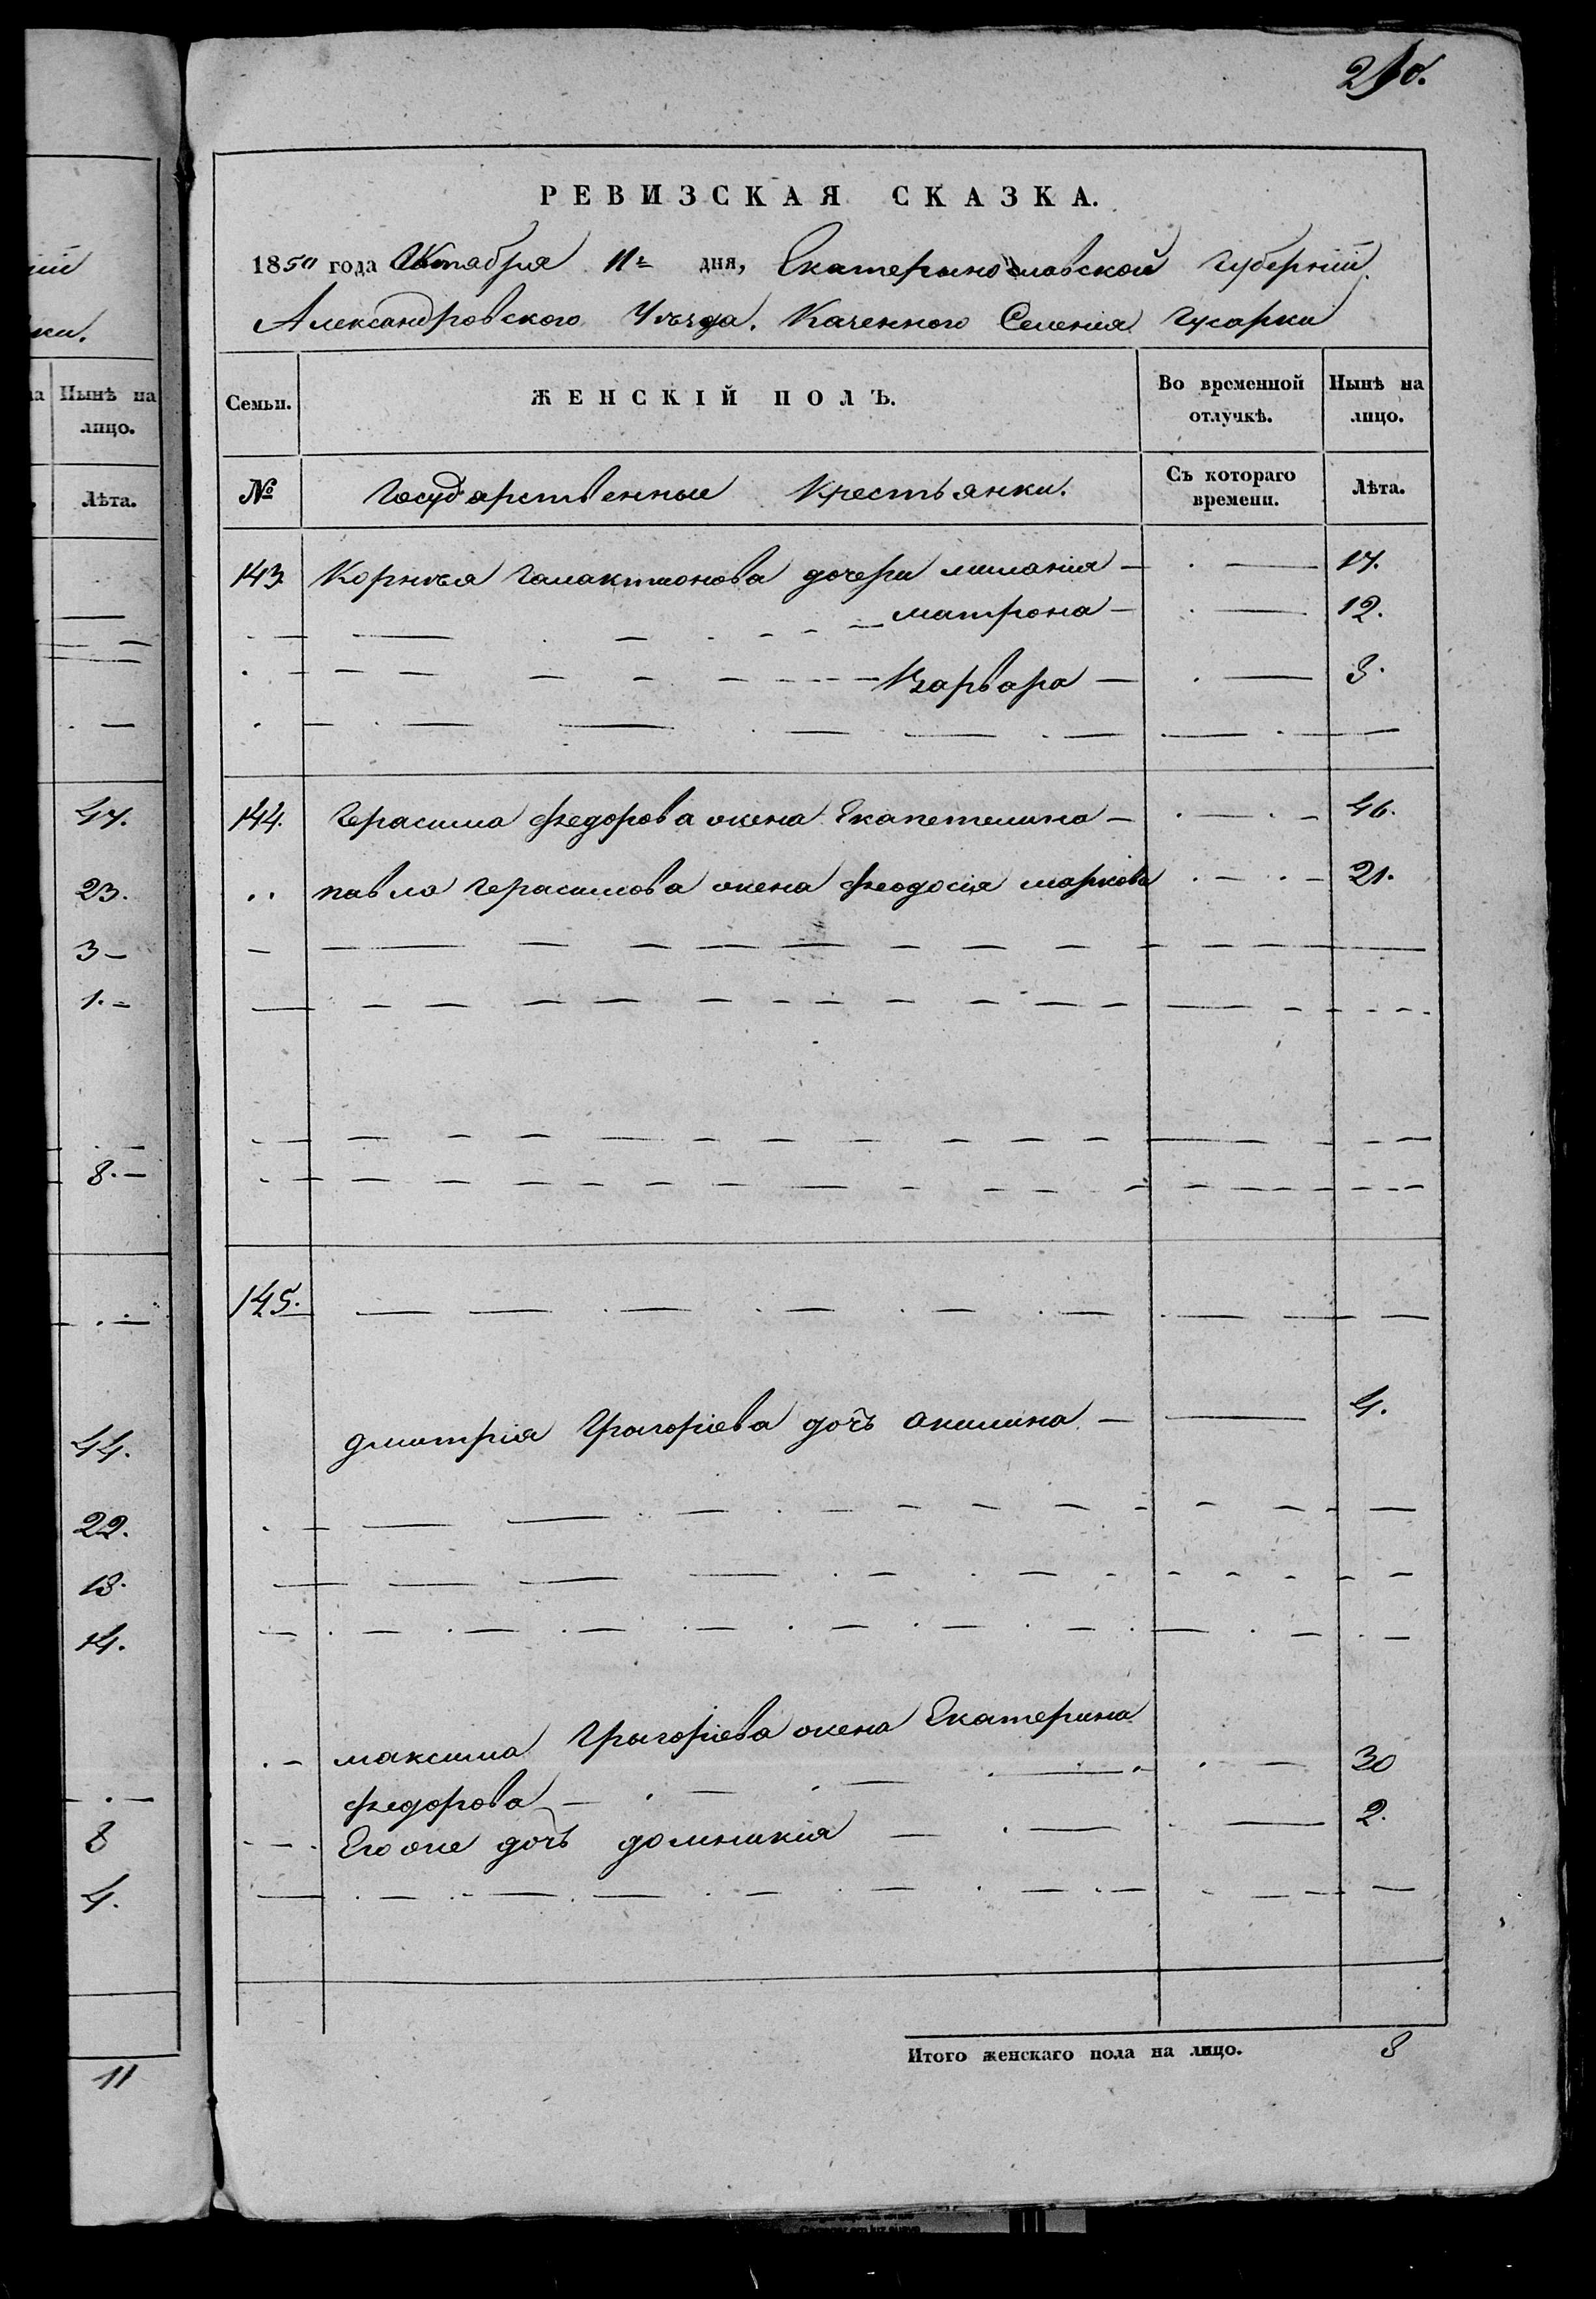 РЕВИЗСКАЯ СКАЗКА.
1850 года Октября 11 дня, Екатеринославской Губерніи
Александровского Уѣзда. Казенного Селенія Гусарки
Семьи. ЖЕНСКІЙ ПОЛЪ. Во временной отлучкѣ. Нынѣ на лицо.
№ Государственные Крестьянки. Съ котораго времени. Лѣта.
143 Корнѣя Галактионова дочери миланія — 17.
матрона — 12.
Варвара — 8.
144. Герасима Федорова жена Екапетелина — 46.
павла Герасимова жена Феодосія маркова 21.
145.
дмитрія Григоріева дочь акилина — 4.
максима Григоріева жена Екатерина
федорова — 30
Его же дочь домникія — 2.
Итого женскаго пола на лицо. 8
ки.
Нынѣ на
лицо.
Лѣта.
47.
23.
3 —
1. —
8. —
44.
22.
18.
14.
8
4.
11